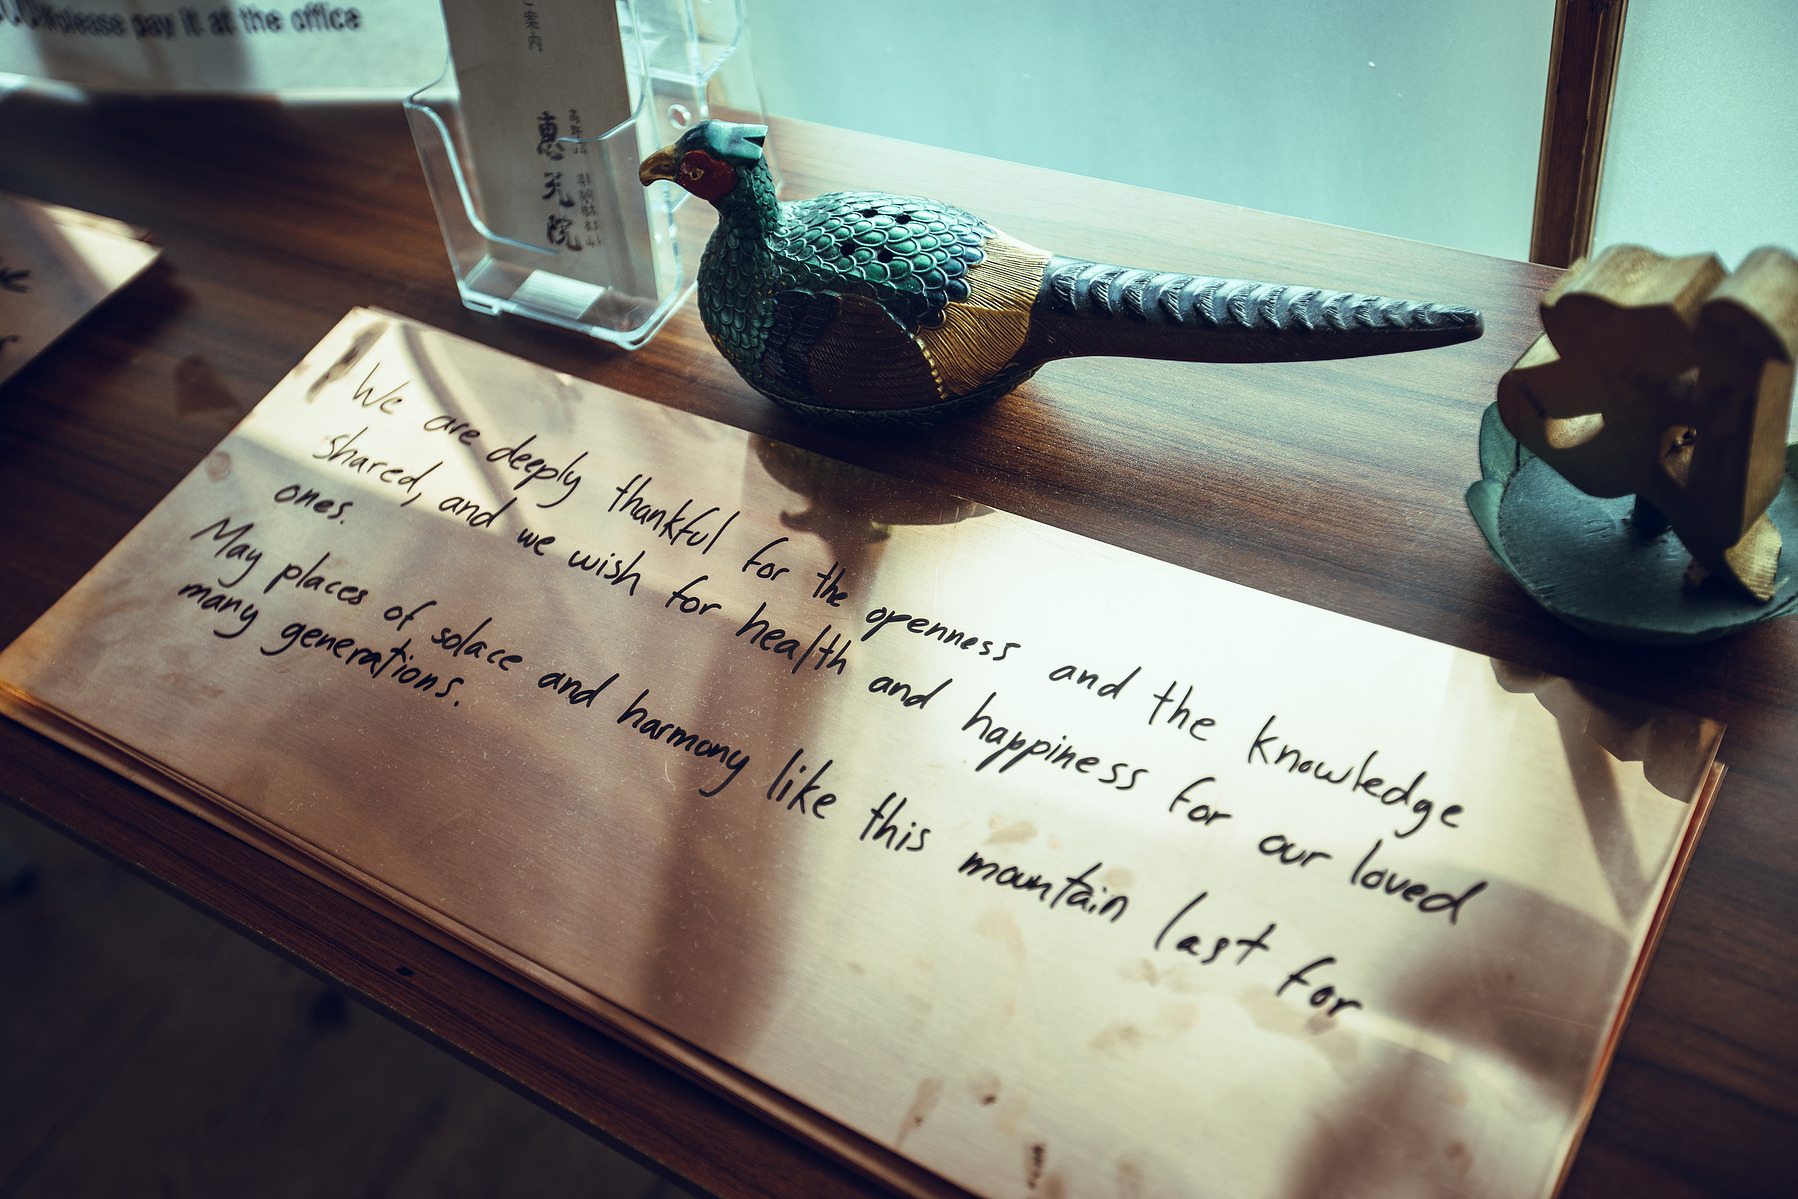 please pay it at the office
案内
惠光院
We are deeply thankful for the openness and the knowledge
shared, and we wish for health and happiness for our loved
ones.
May places of solace and harmony like this mountain last for
many generations.